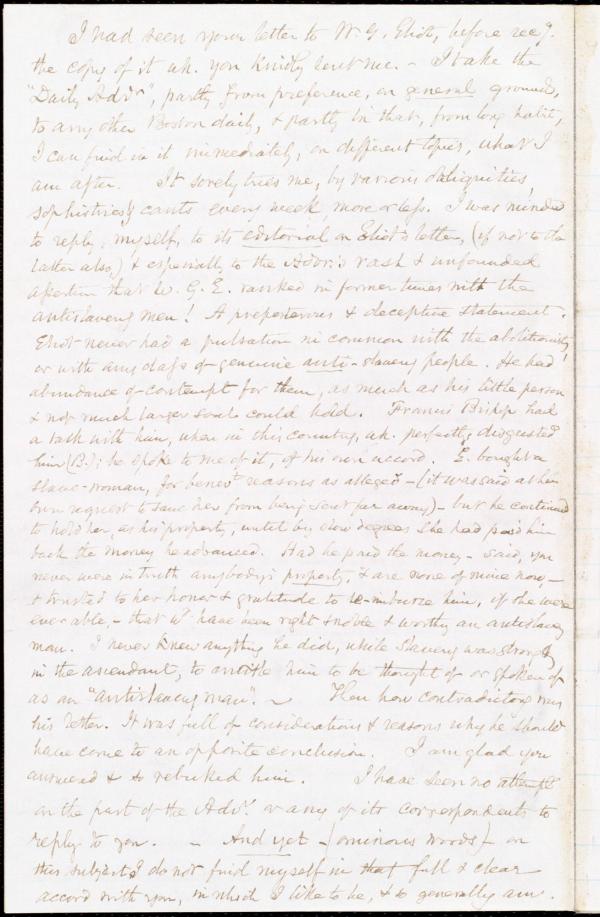 I had seen your letter to W. G. Eliot, before rec'g.
the copy of it wh. you kindly sent me. - I take the
"Daily Advr", partly from preference, on general ground,
to any other Boston daily, & partly in that, from long habit,
I can find in it immediately, on different topics, what I
am after. It sorely tries me, by various obliquities,
sophistries & cants every week, more or less. I was minded
to reply, myself, to its editorial on Eliot's letter, (if not to the
latter also,) & especially to the Advr.'s rash & unfounded
assertion that W. G. E. ranked in former times with the
antislavery men! A preposterous & deceptive statement.
Eliot never had a pulsation in common with the abolitionists,
or with any class of genuine anti-slavery people. He had
abundance of contempt for them, as much as his little person
& not much larger soul could hold. Francis Bishop had
a talk with him, when in this country, wh. perfectly disgusted
him (B.); he spoke to me of it, of his own accord. E. bought a
slave-woman, for benevt reasons as alleged - (it was said at her
own request to save her from being sent far away) - but he continued
to hold her, as his property, until by slow degrees she had paid him
back the money he advanced. Had he paid the money - said, you
never were in truth anybody's property, & are none of mine now, -
& trusted to her honor & gratitude to re-imburse him, if she were
ever able, - that wd have been right & noble & worthy an antislavery
man. I never knew anything he did, while Slavery was strongly
in the ascendant, to entitle him to be thought of or spoken of
as an "antislavery man". - Then how contradictory was
his letter. It was full of considerations & reasons why he should
have come to an opposite conclusion. I am glad you
answered & so rebuked him. I have seen no attempt
on the part of the Advr. or any of its correspondents to
reply to you. - And yet - (ominous words) - on
this subject I do not find myself in that full & clear
accord with you, in which I like to be, & so generally am.